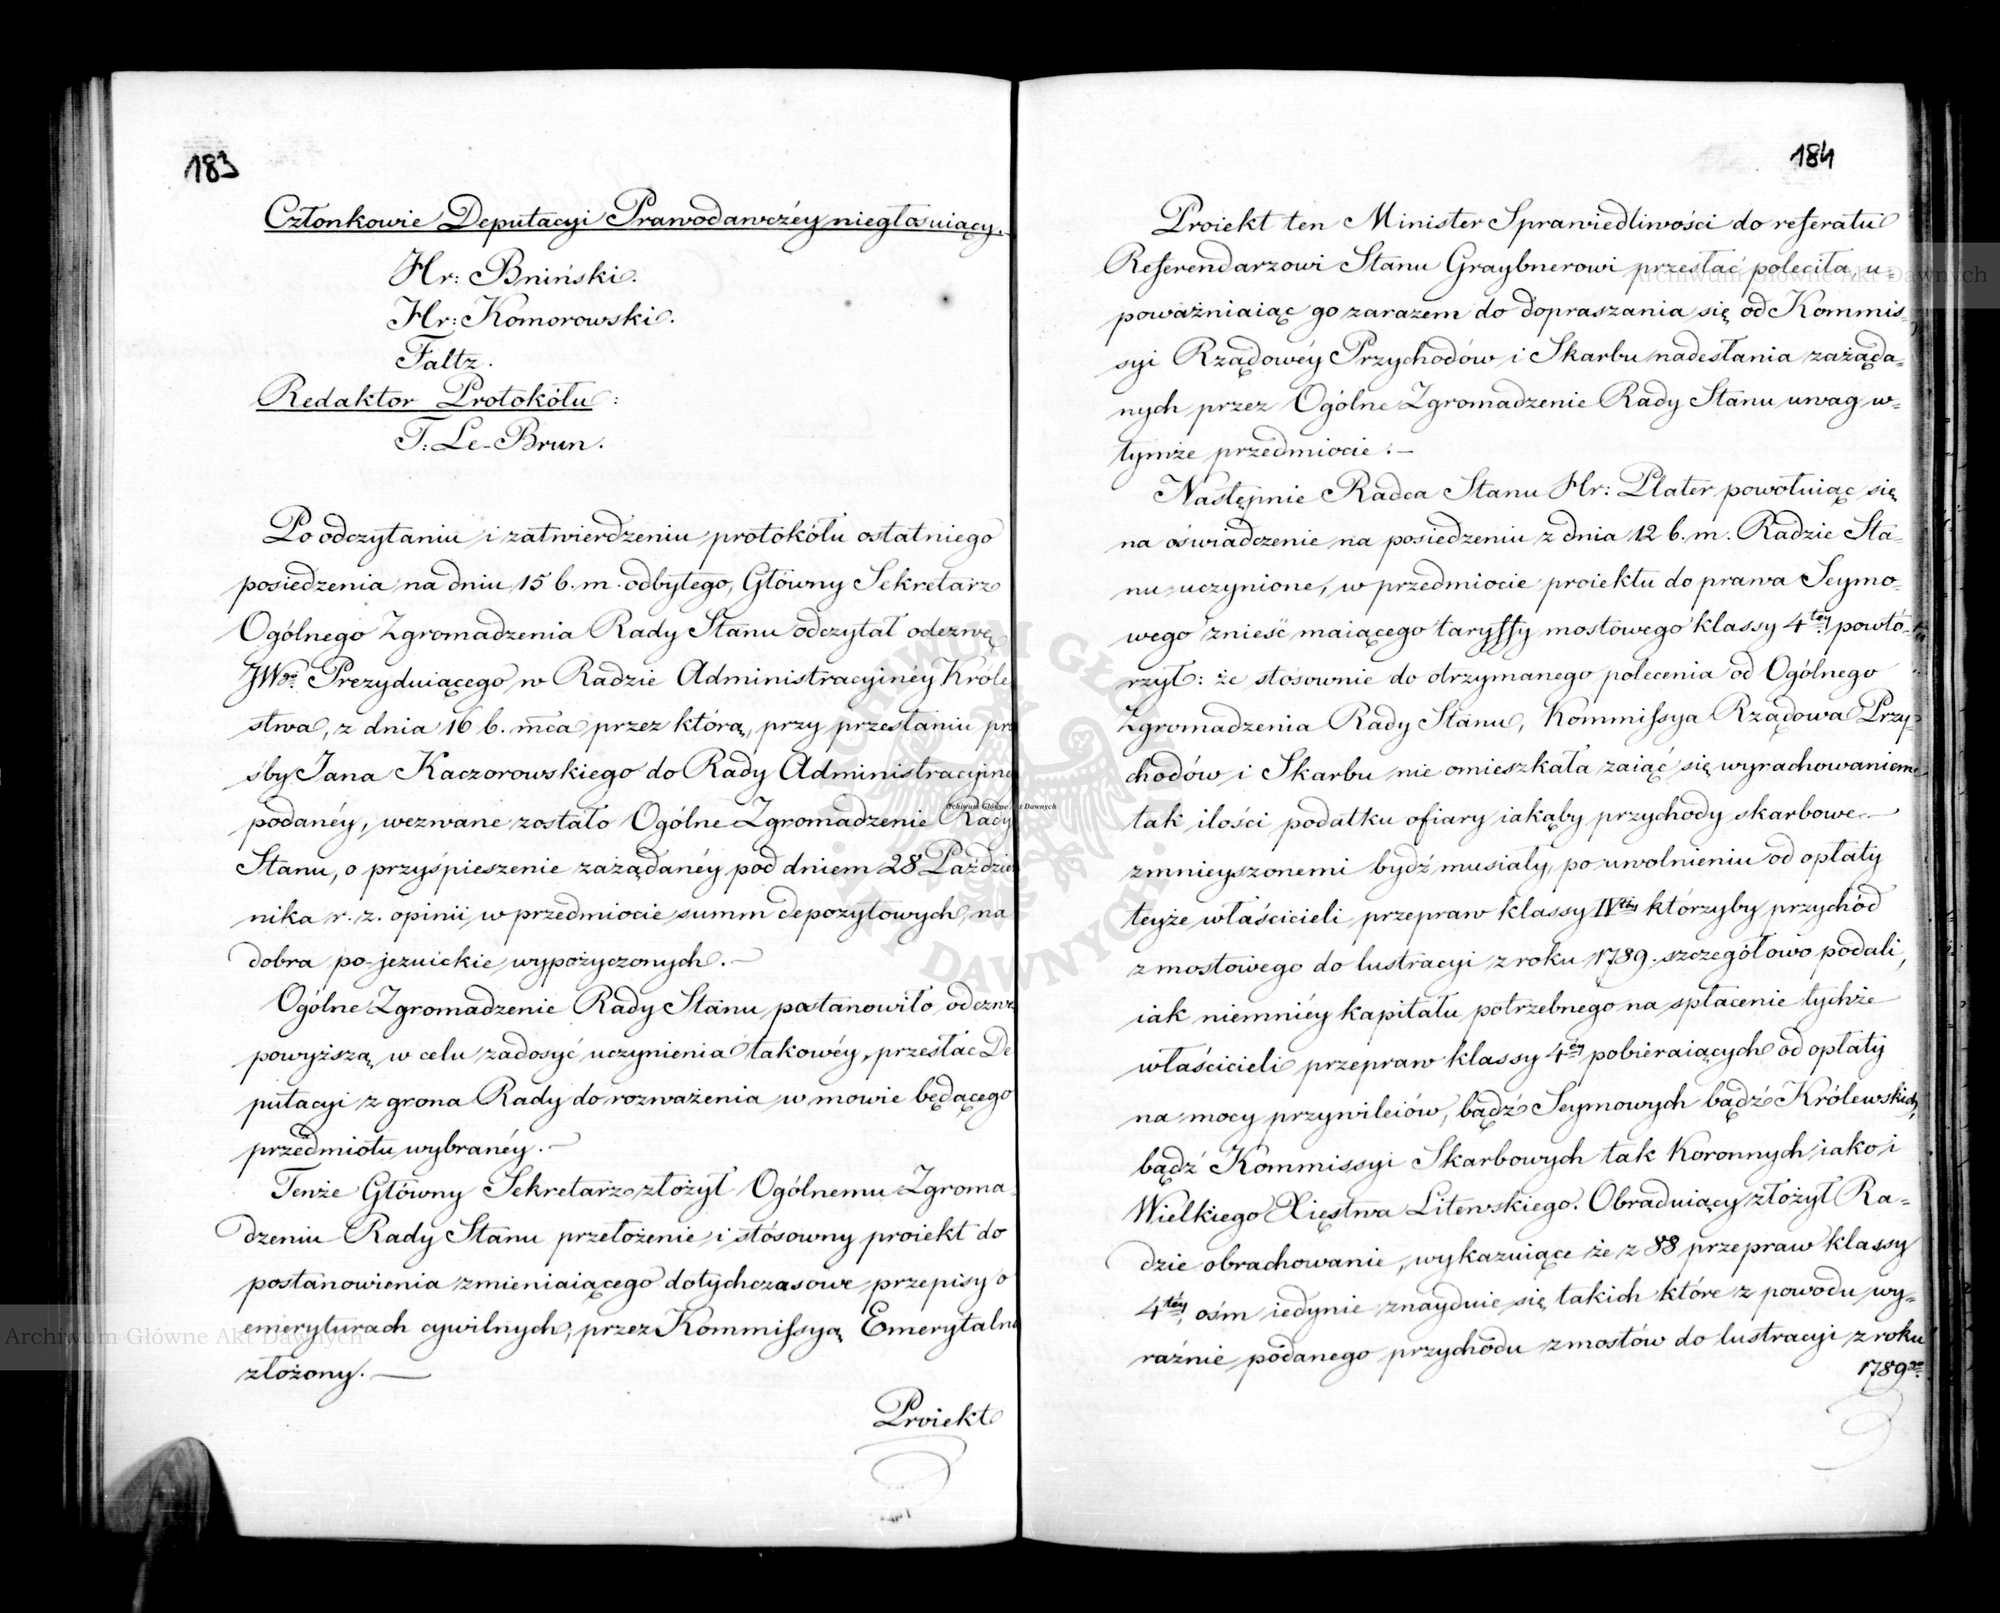 183
Członkowie Deputacyi Prawodawczéy niegłosuiący.
Hr: Bniński.
Hr: Komorowski.
Faltz.
Redaktor Protokółu:
T: Le-Brun.
Po odczytaniu i zatwierdzeniu protokółu ostatniego
posiedzenia na dniu 15 b. m. odbytego, Główny Sekretarz
Ogólnego Zgromadzenia Rady Stanu odczytał odezwę
JWgo. Prezyduiącego w Radzie Administracyinéy Króle
stwa, z dnia 16 b. mca przez którą, przy przesłaniu pro
śby Jana Kaczorowskiego do Rady Administracyjne
podanéy, wezwane zostało Ogólne Zgromadzenie Rady
Stanu, o przyśpieszenie zażądanéy pod dniem 28 Paździer
nika r. z. opinii w przedmiocie summ depozytowych na
dobra po-jezuickie wypożyczonych.—
Ogólne Zgromadzenie Rady Stanu postanowiło odezwę
powyższą, w celu zadosyć uczynienia takowéy, przesłać De
putacyi z grona Rady do rozważenia w mowie będącego
przedmiotu wybranéy.—
Tenże Główny Sekretarz złożył Ogólnemu Zgroma
dzeniu Rady Stanu przełożenie i stósowny proiekt do
postanowienia zmieniaiącego dotychczasowe przepisy o
emeryturach cywilnych, przez Kommissyą Emerytalną
złożony.—
Proiekt
184
Proiekt ten Minister Sprawiedliwości do referatu
Referendarzowi Stanu Graybnerowi przesłać poleciła, u-
poważniaiąc go zarazem do dopraszania się od Kommis-
syi Rządowéy Przychodów i Skarbu nadesłania zażąda-
nych przez Ogólne Zgromadzenie Rady Stanu uwag w-
tymże przedmiocie.—
Następnie Radca Stanu Hr: Plater powołuiąc się
na oświadczenie na posiedzeniu z dnia 12 b. m. Radzie Sta-
nu uczynione, w przedmiocie proiektu do prawa Seymo-
wego znieść maiącego taryffy mostowego klassy 4téy powtó-
rzył: że stósownie do otrzymanego polecenia od Ogólnego
Zgromadzenia Rady Stanu, Kommissya Rządowa Przy-
chodów i Skarbu nie omieszkała zaiąć się wyrachowaniem
tak ilości podatku ofiary iakąby przychody skarbowe—
zmnieyszonemi bydź musiały, po uwolnieniu od opłaty
teyże właścicieli przepraw klassy IVtéy którzyby przychód
z mostowego do lustracyi z roku 1789. szczegółowo podali,
iak niemniéy kapitału potrzebnego na spłacenie tychże
właścicieli przepraw klassy 4éy pobieraiących od opłaty
na mocy przywileiów, bądź Seymowych bądź Królewskich,
bądź Kommissyi Skarbowych tak Koronnych iako i
Wielkiego Xięstwa Litewskiego. Obraduiący złożył Ra-
dzie obrachowanie, wykazuiące że z 88 przepraw klassy
4téy, ośm iedynie znayduie się takich które z powodu wy-
raźnie podanego przychodu z mostów do lustracyi z roku
1789go.
Archiwum Główne Akt Dawnych
Archiwum Główne Akt Dawnych
Archiwum Główne Akt Dawnych
ARCHIWUM GŁÓWNE AKT DAWNYCH